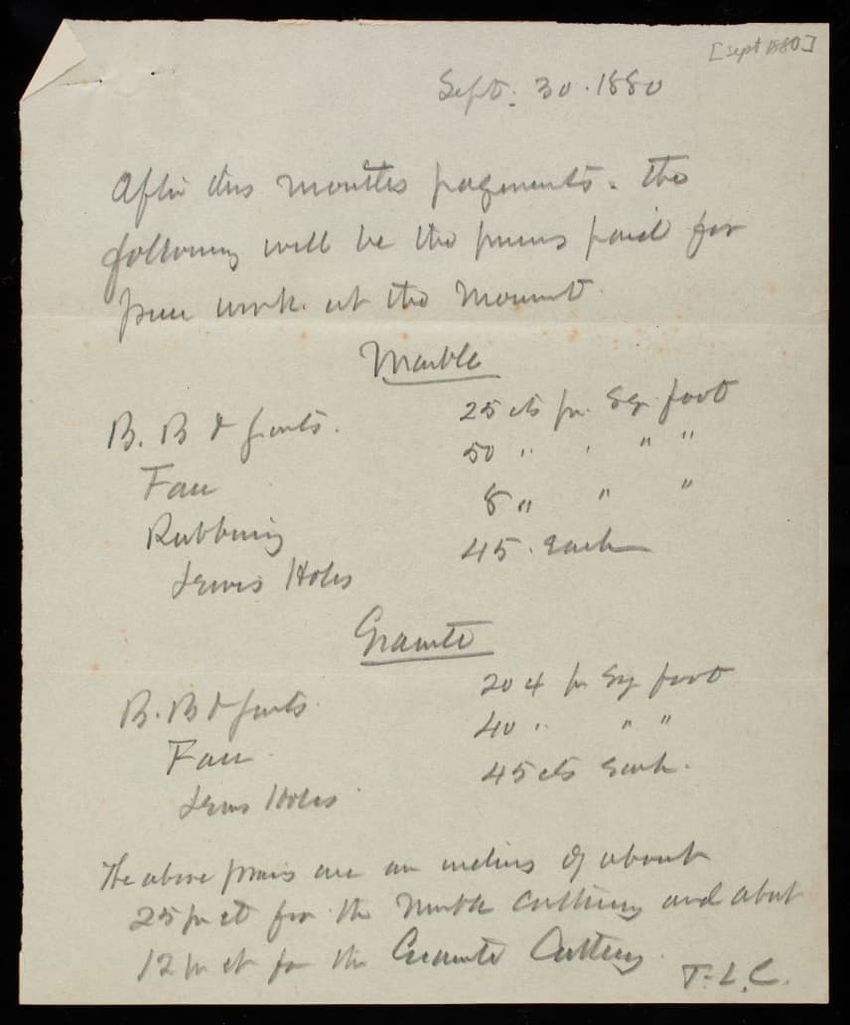 [Sept 1880]
Sept. 30. 1880
After this months payments. the
following will be the prices paid for
piece work at the Monument
Marble
B. B & joints. 25 cts pr. Sq. foot
Face 50 " " " "
Rubbing 8 " " "
Lewis Holes 45. Each
Granite
B. B & joints. 20 ¢ pr Sq foot
Face 40 " " "
Lewis Holes 45 cts Each.
The above prices are an of about
25 pr ct for the Marble Cutting and about
12 pr ct for the Granite Cutting.
T. L. C.